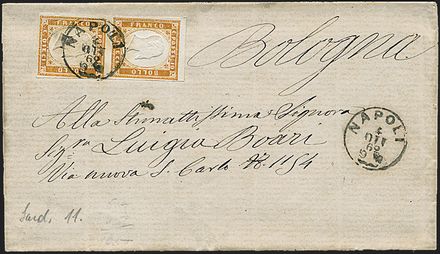 FRANCO
BOLLO
FRANCO
BOLLO
NAPOLI
Bologna
Alla Stimatissima Signora
Sig.ra Luigia Boari
Via nuova S. Carlo N. 1154
NAPOLI
62
Sard. 11.